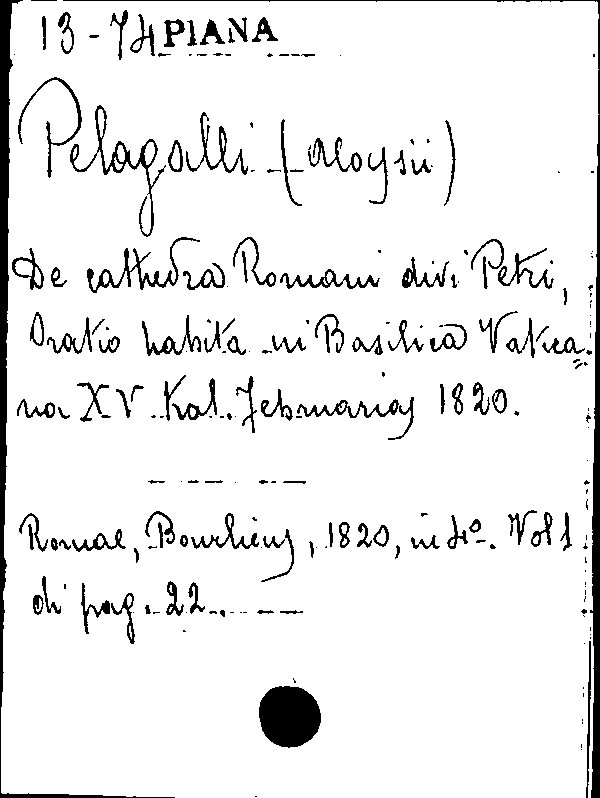 13-74 PIANA
Pelagalli (Aloysii)
De cathedra Romani divi Petri,
Oratio habita in Basilica Vatica=
na XV Kal. Februarias 1820.
Romae, Bourliens, 1820, in 4º. Vol 1
di pag. 22.